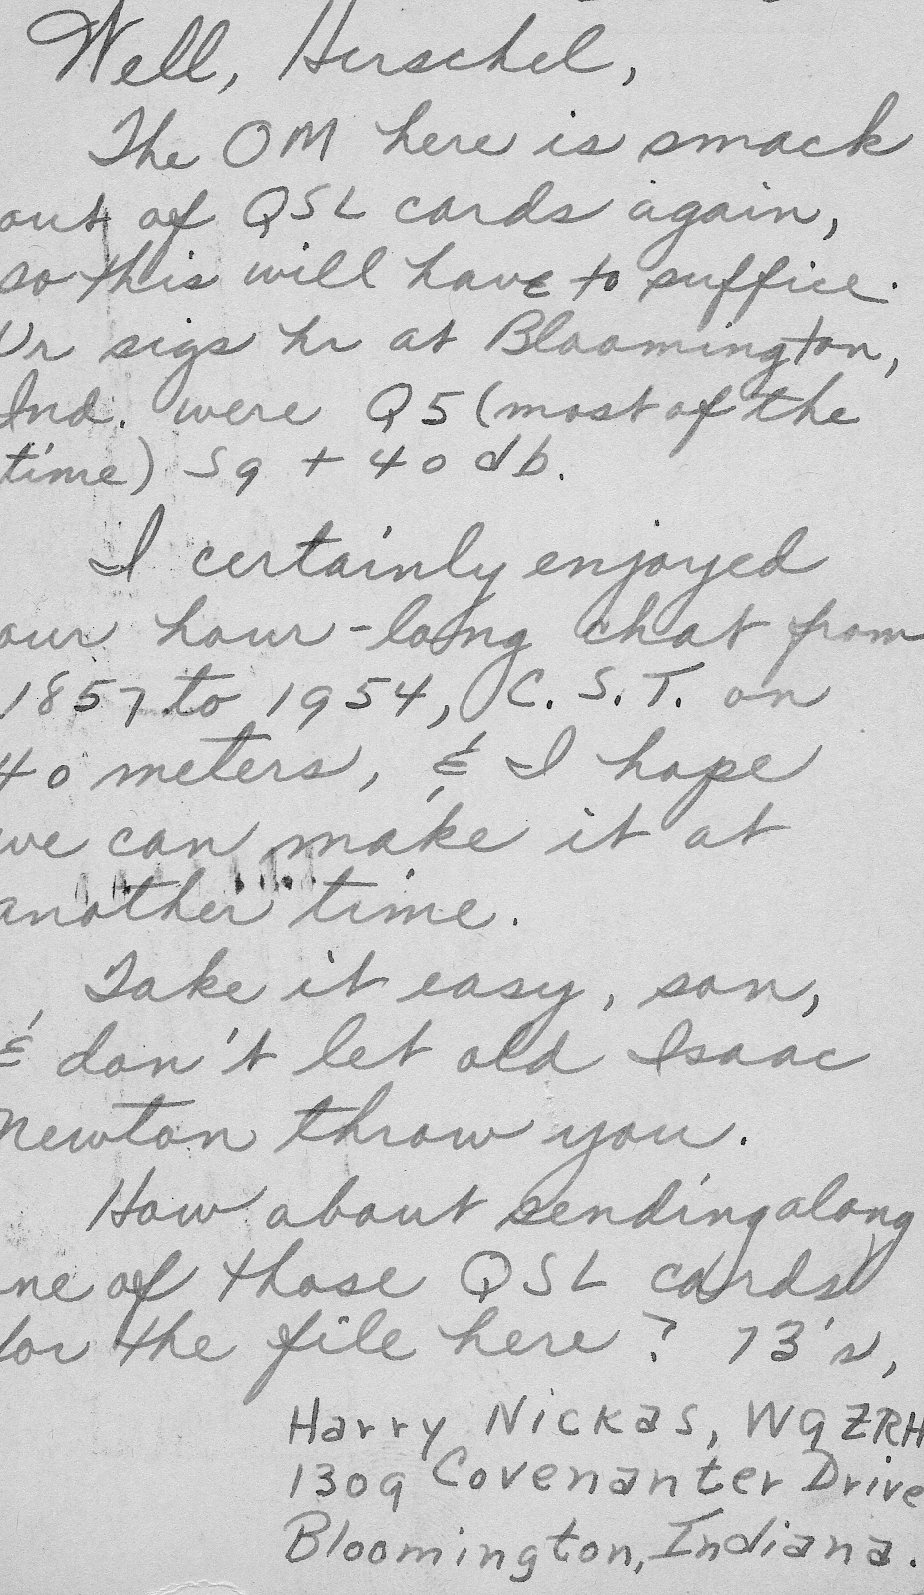 Well, Herschel,
The OM here is smack
out of QSL cards again,
so this will have to suffice.
Ur sigs hr at Bloomington,
Ind. were Q5 (most of the
time) S9 + 40 db.
I certainly enjoyed
our hour-long chat from
1857 to 1954, C.S.T. on
40 meters, & I hope
we can make it at
another time.
Take it easy, son,
& don't let old Isaac
Newton throw you.
How about sending along
ne of those QSL cards
for the file here? 73's,
Harry Nickas, W9ZRH
1309 Covenanter Drive
Bloomington, Indiana.